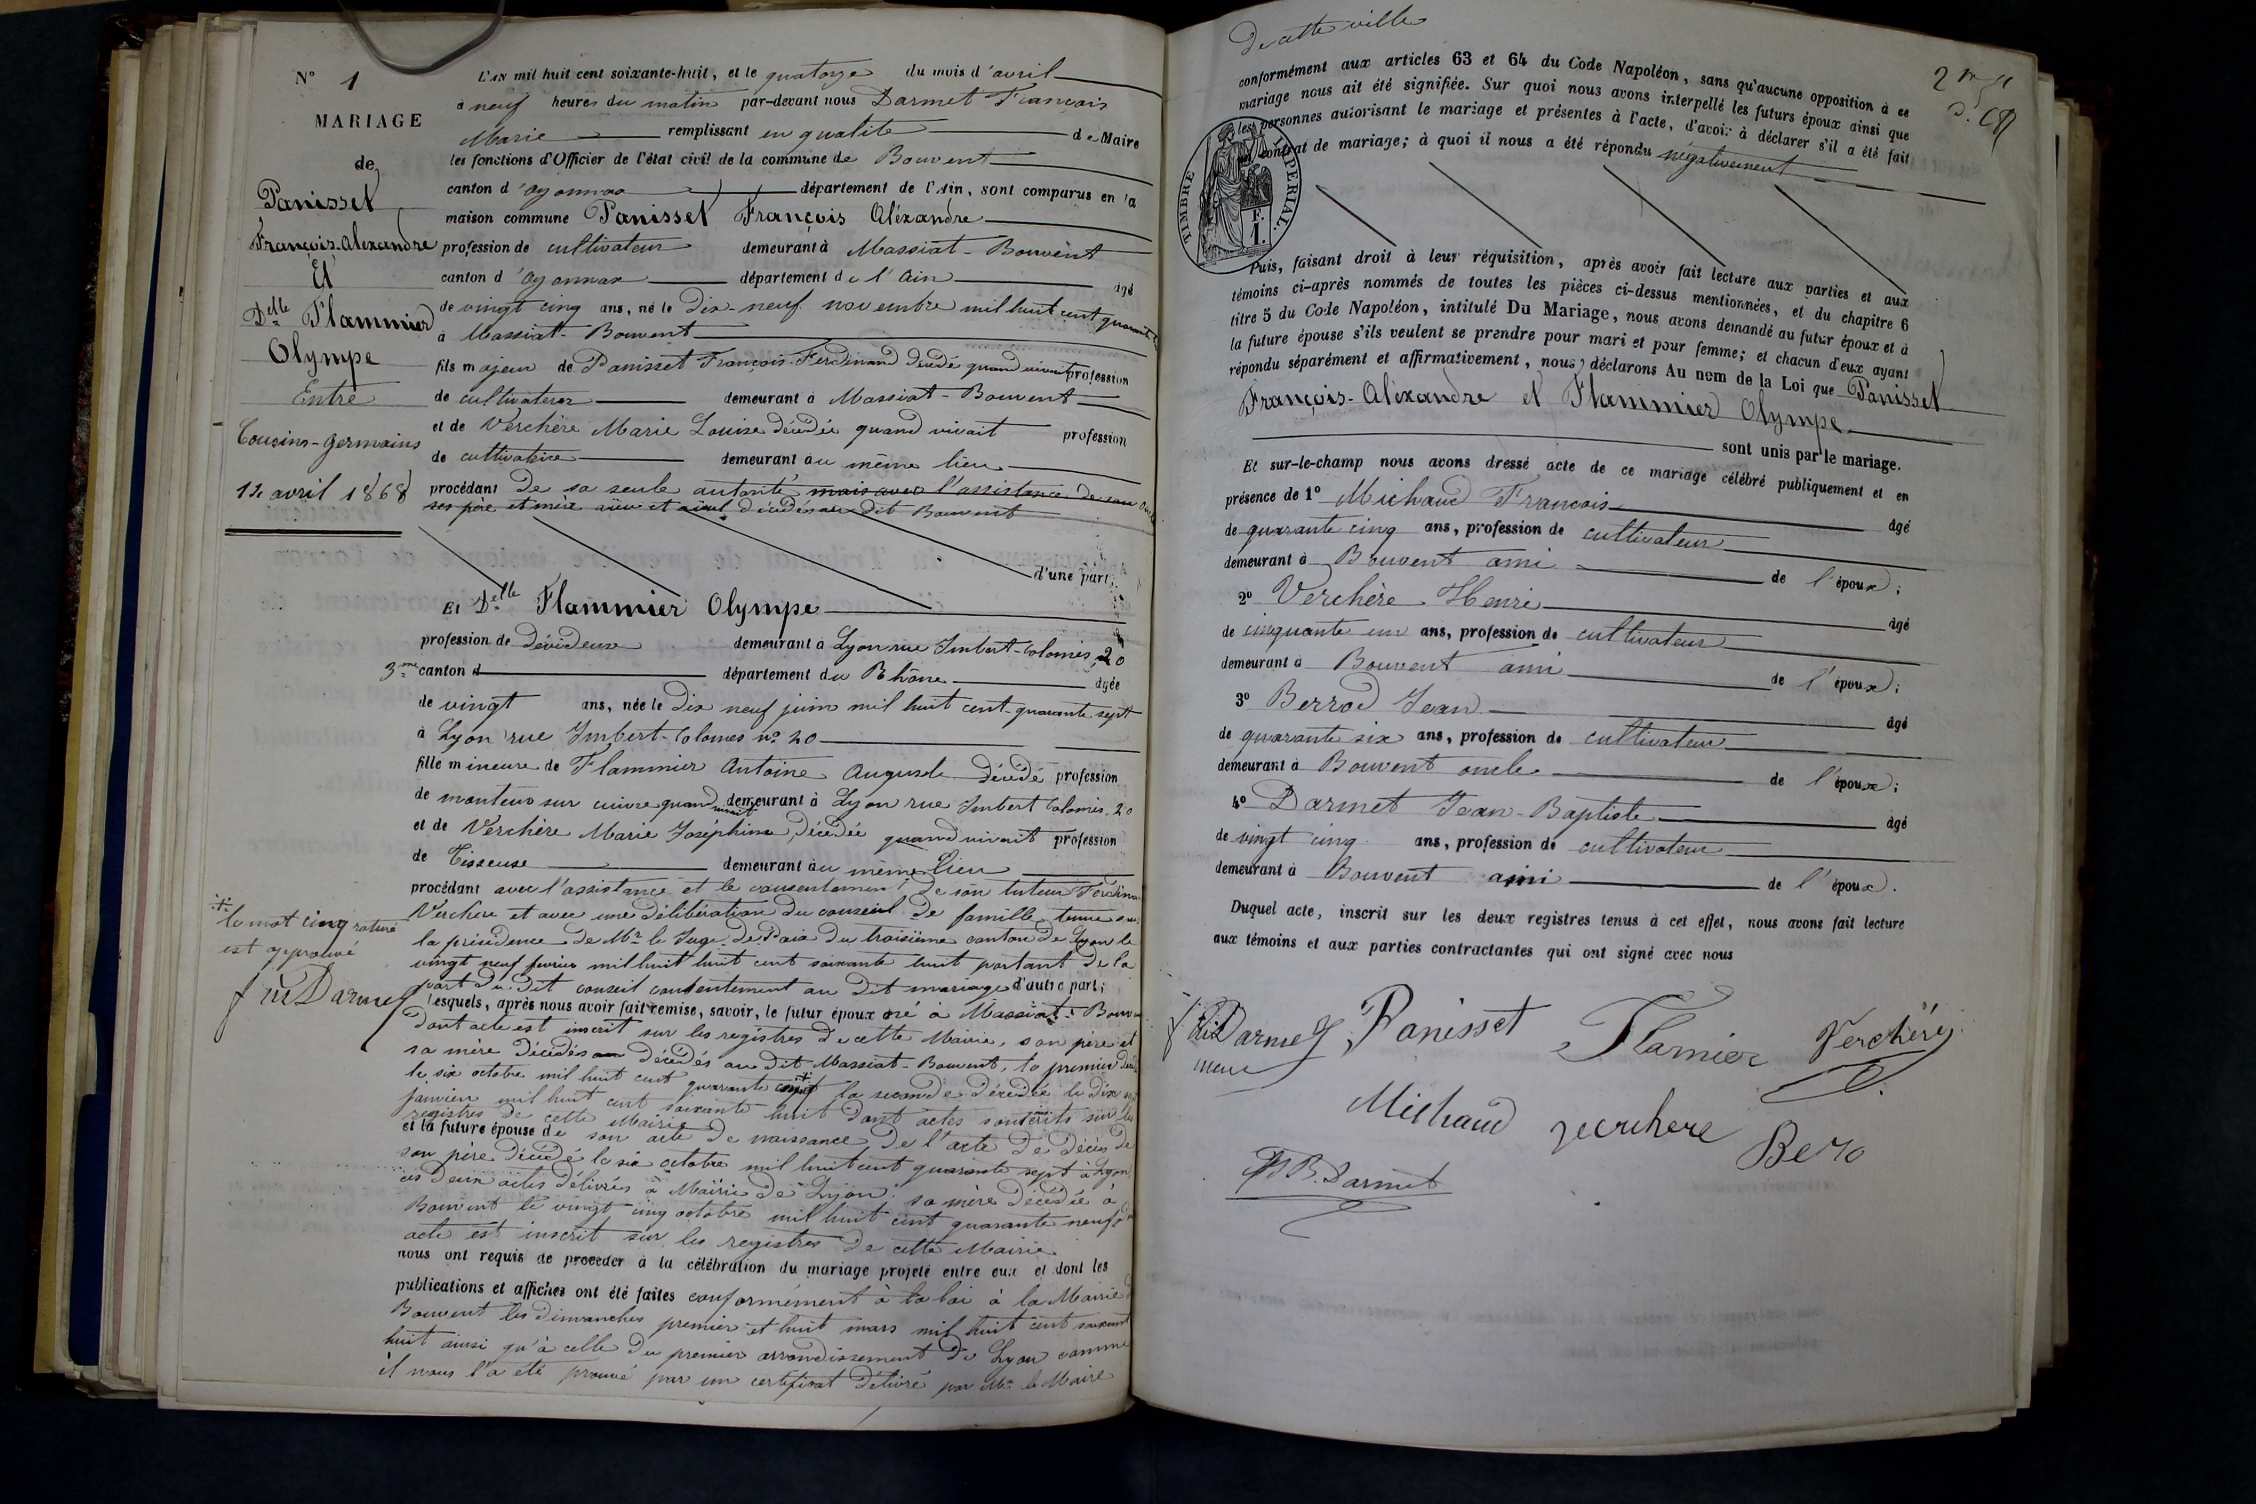 N° 1
MARIAGE
de
Panisset
François-Alexandre
Et
Delle Flammier
Olympe
Entre
Cousins-germains
14 avril 1868
L'AN mil huit cent soixante-huit, et le quatorze du mois d'avril
à neuf heures du matin par-devant nous Darmet François
Marie remplissant en qualité de Maire
les fonctions d'Officier de l'état civil de la commune de Bouvent
canton d'oyonnax département de l'Ain, sont comparus en la
maison commune Panisset François Aléxandre
profession de cultivateur demeurant à Massiat-Bouvent
canton d'oyonnax département de l'Ain âgé
de vingt cinq ans, né le dix-neuf novembre mil huit cent quarante
à Massiat-Bouvent
fils majeur de Panisset François-Ferdinand décédé quand vivait profession
de cultivateur demeurant à Massiat-Bouvent
et de Verchère Marie Louise décédée quand vivait profession
de cultivatrice demeurant au même lieu
procédant de sa seule autorité mais avec l'assistance de
ses père et mère aïeu et aïeul décédés au dit Bouvent
d'une part;
Et Delle Flammier Olympe
profession de dévideuse demeurant à Lyon rue Imbert-Colomès, 20
3me canton d département du Rhône âgée
de vingt ans, née le dix neuf juin mil huit cent quarante sept
à Lyon rue Imbert-Colomes n° 20
fille mineure de Flammier Antoine Auguste décédé profession
de monteur sur cuivre quand vivait demeurant à Lyon rue Imbert Colomès 20
et de Verchère Marie Joséphine, décédée quand vivait profession
de Tisseuse demeurant au même lieu
procédant avec l'assistance et le consentement de son tuteur
Verchere et avec une délibération du conseil de famille tenue sous
la présidence de Mr le Juge de Paix du troisième canton de Lyon le
vingt neuf fevrier mil huit huit cent soixante huit portant de la
part du dit conseil consentement au dit mariage d'autre part;
lesquels, après nous avoir fait remise, savoir, le futur époux né à Massiat-Bouvent
dont acte est inscrit sur les registres de cette Mairie, son père et
sa mère décédés décédés au dit Massiat-Bouvent, le premier
le six octobre mil huit cent quarante cinq la seconde décédée le dix
janvier mil huit cent soixante huit dont actes sont inscrits sur les
registres de cette Mairie
et la future épouse de son acte de naissance de l'acte de décès de
son père décédé le six octobre mil huit cent quarante sept à Lyon
ces deux actes délivrés à Mairie de Lyon: sa mère décédée à
Bouvent le vingt cinq octobre mil huit cent quarante neuf
acte est inscrit sur les registres de cette Mairie
nous ont requis de proceder à la célébration du mariage projeté entre eux et dont les
publications et affiches ont été faites conformément à la loi à la Mairie
Bouvent les dimanches premier et huit mars mil huit cent soixante
huit ainsi qu'à celle du premier arrondissement de Lyon comme
il nous l'a été prouvé par un certificat délivré par Mr le Maire
le mot cinq raturé
est approuvé
Darmet
de cette ville
conformément aux articles 63 et 64 du Code Napoléon, sans qu'aucune opposition à ce
mariage nous ait été signifiée. Sur quoi nous avons interpellé les futurs époux ainsi que
les personnes autorisant le mariage et présentes à l'acte, d'avoir à déclarer s'il a été fait
contrat de mariage; à quoi il nous a été répondu négativement
TIMBRE IMPERIAL.
Puis, faisant droit à leur réquisition, après avoir fait lecture aux parties et aux
témoins ci-après nommés de toutes les pièces ci-dessus mentionnées, et du chapitre 6
titre 5 du Code Napoléon, intitulé Du Mariage, nous avons demandé au futur époux et à
la future épouse s'ils veulent se prendre pour mari et pour femme; et chacun d'eux ayant
répondu séparément et affirmativement, nous déclarons Au nom de la Loi que Panisset
François-Aléxandre et Flammier Olympe
sont unis par le mariage.
Et sur-le-champ nous avons dressé acte de ce mariage célébré publiquement et en
présence de 1° Michaud François âgé
de quarante cinq ans, profession de cultivateur
demeurant à Bouvent ami de l'époux;
2° Verchère Henri âgé
de cinquante un ans, profession de cultivateur
demeurant à Bouvent ami de l'époux;
3° Berrod Jean âgé
de quarante six ans, profession de cultivateur
demeurant à Bouvent oncle de l'époux;
4° Darmet Jean-Baptiste âgé
de vingt cinq ans, profession de cultivateur
demeurant à Bouvent ami de l'époux.
Duquel acte, inscrit sur les deux registres tenus à cet effet, nous avons fait lecture
aux témoins et aux parties contractantes qui ont signé avec nous
Darmet Panisset Flamier Verchère
Michaud Verchere Bero
JB. Darmet